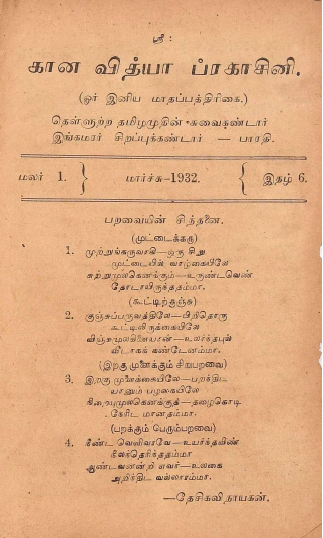 ஸ்ரீ :
கான வித்யா ப்ரகாசினி.
(ஓர் இனிய மாதப்பத்திரிகை.)
தெள்ளுற்ற தமிழமுதின் சுவைகண்டார்
இங்கமரர் சிறப்புக்கண்டார் — பாரதி.
மலர் 1. } மார்ச்சு-1932. { இதழ் 6.
பறவையின் சிந்தனை.
(முட்டைக்கரு)
1. முற்றுங்கருவாகி—ஒரு சிறு
முட்டையில் வாழ்கையிலே
சுற்றுமுலகெனக்கும்—உருண்டவெண்
தோடாயிருந்ததம்மா.
(கூட்டிற்குஞ்சு)
2. குஞ்சுப்பருவத்திலே—பிறிதொரு
கூட்டிலிருக்கையிலே
விஞ்சுமுலகினையான்—உலர்ந்தபுல்
வீடாகக் கண்டேனம்மா.
(இறகு முளைக்கும் சிறுபறவை)
3. இறகு முளைக்கையிலே—பறந்திட
யானும் பழகையிலே
நிறையுமுலகெனக்குத்—தழைகொடி
நேரிட மானதம்மா.
(பறக்கும் பெரும்பறவை)
4. நீண்ட வெளிவரவே—உயர்ந்தவிண்
நீலந்தெரிந்ததம்மா
ஆண்டவனன்றி எவர்—உலகை
அறிந்திட வல்லாரம்மா.
—தேசிகவிநாயகன்.